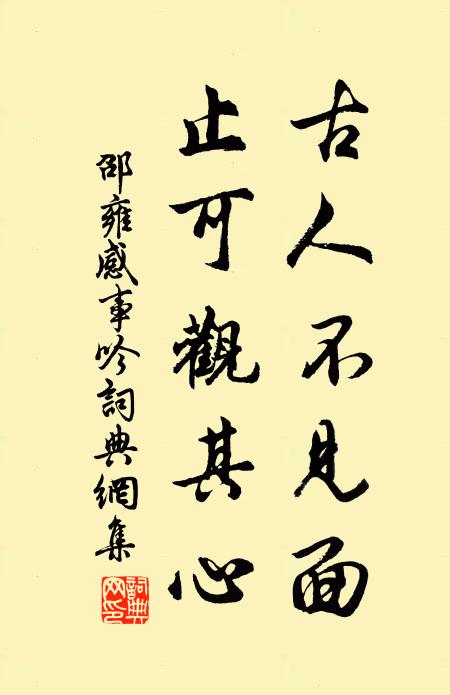 古人不見面
止可觀其心
邵雍感事吟詞典網集
詞典網印